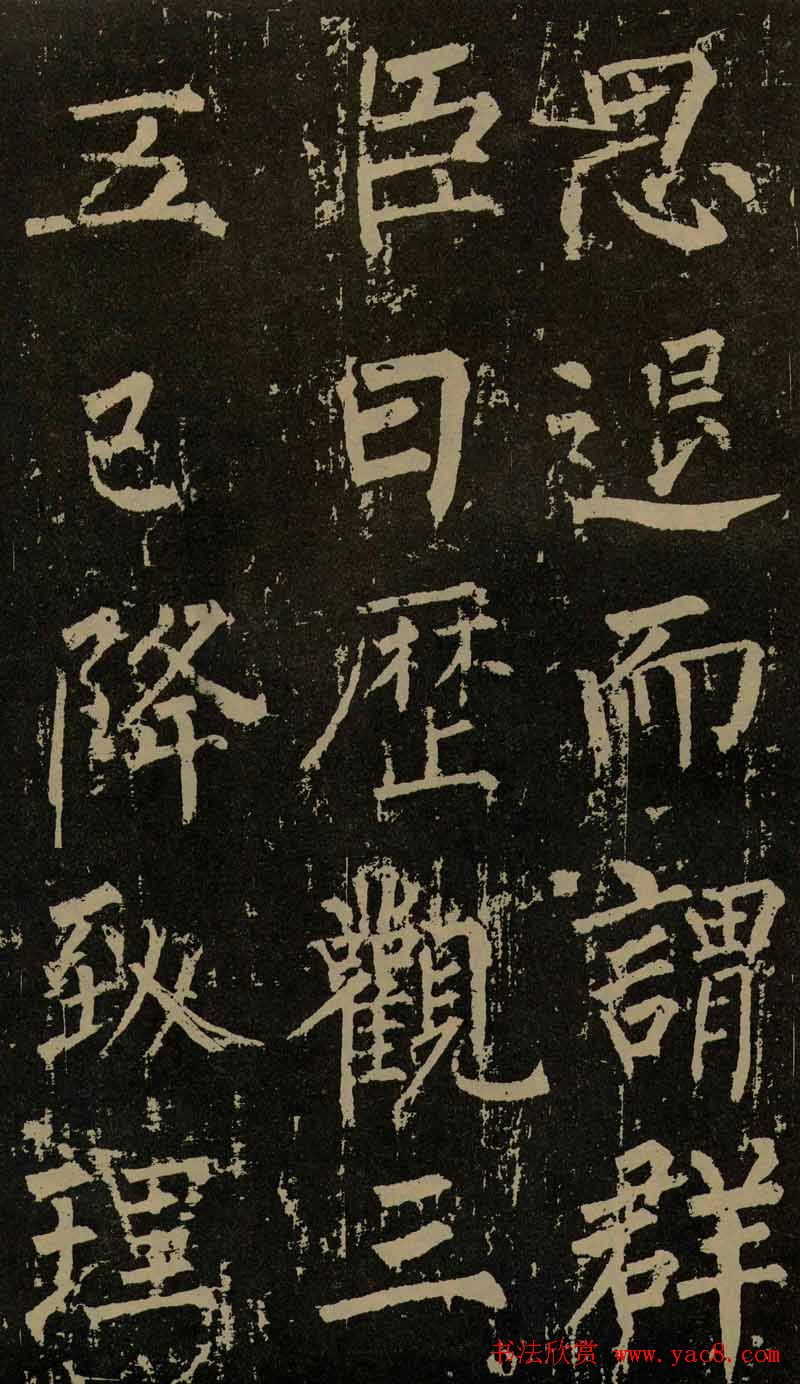 思退而謂群
臣曰歷觀三
五已降致理
书法欣赏 www.yac8.com